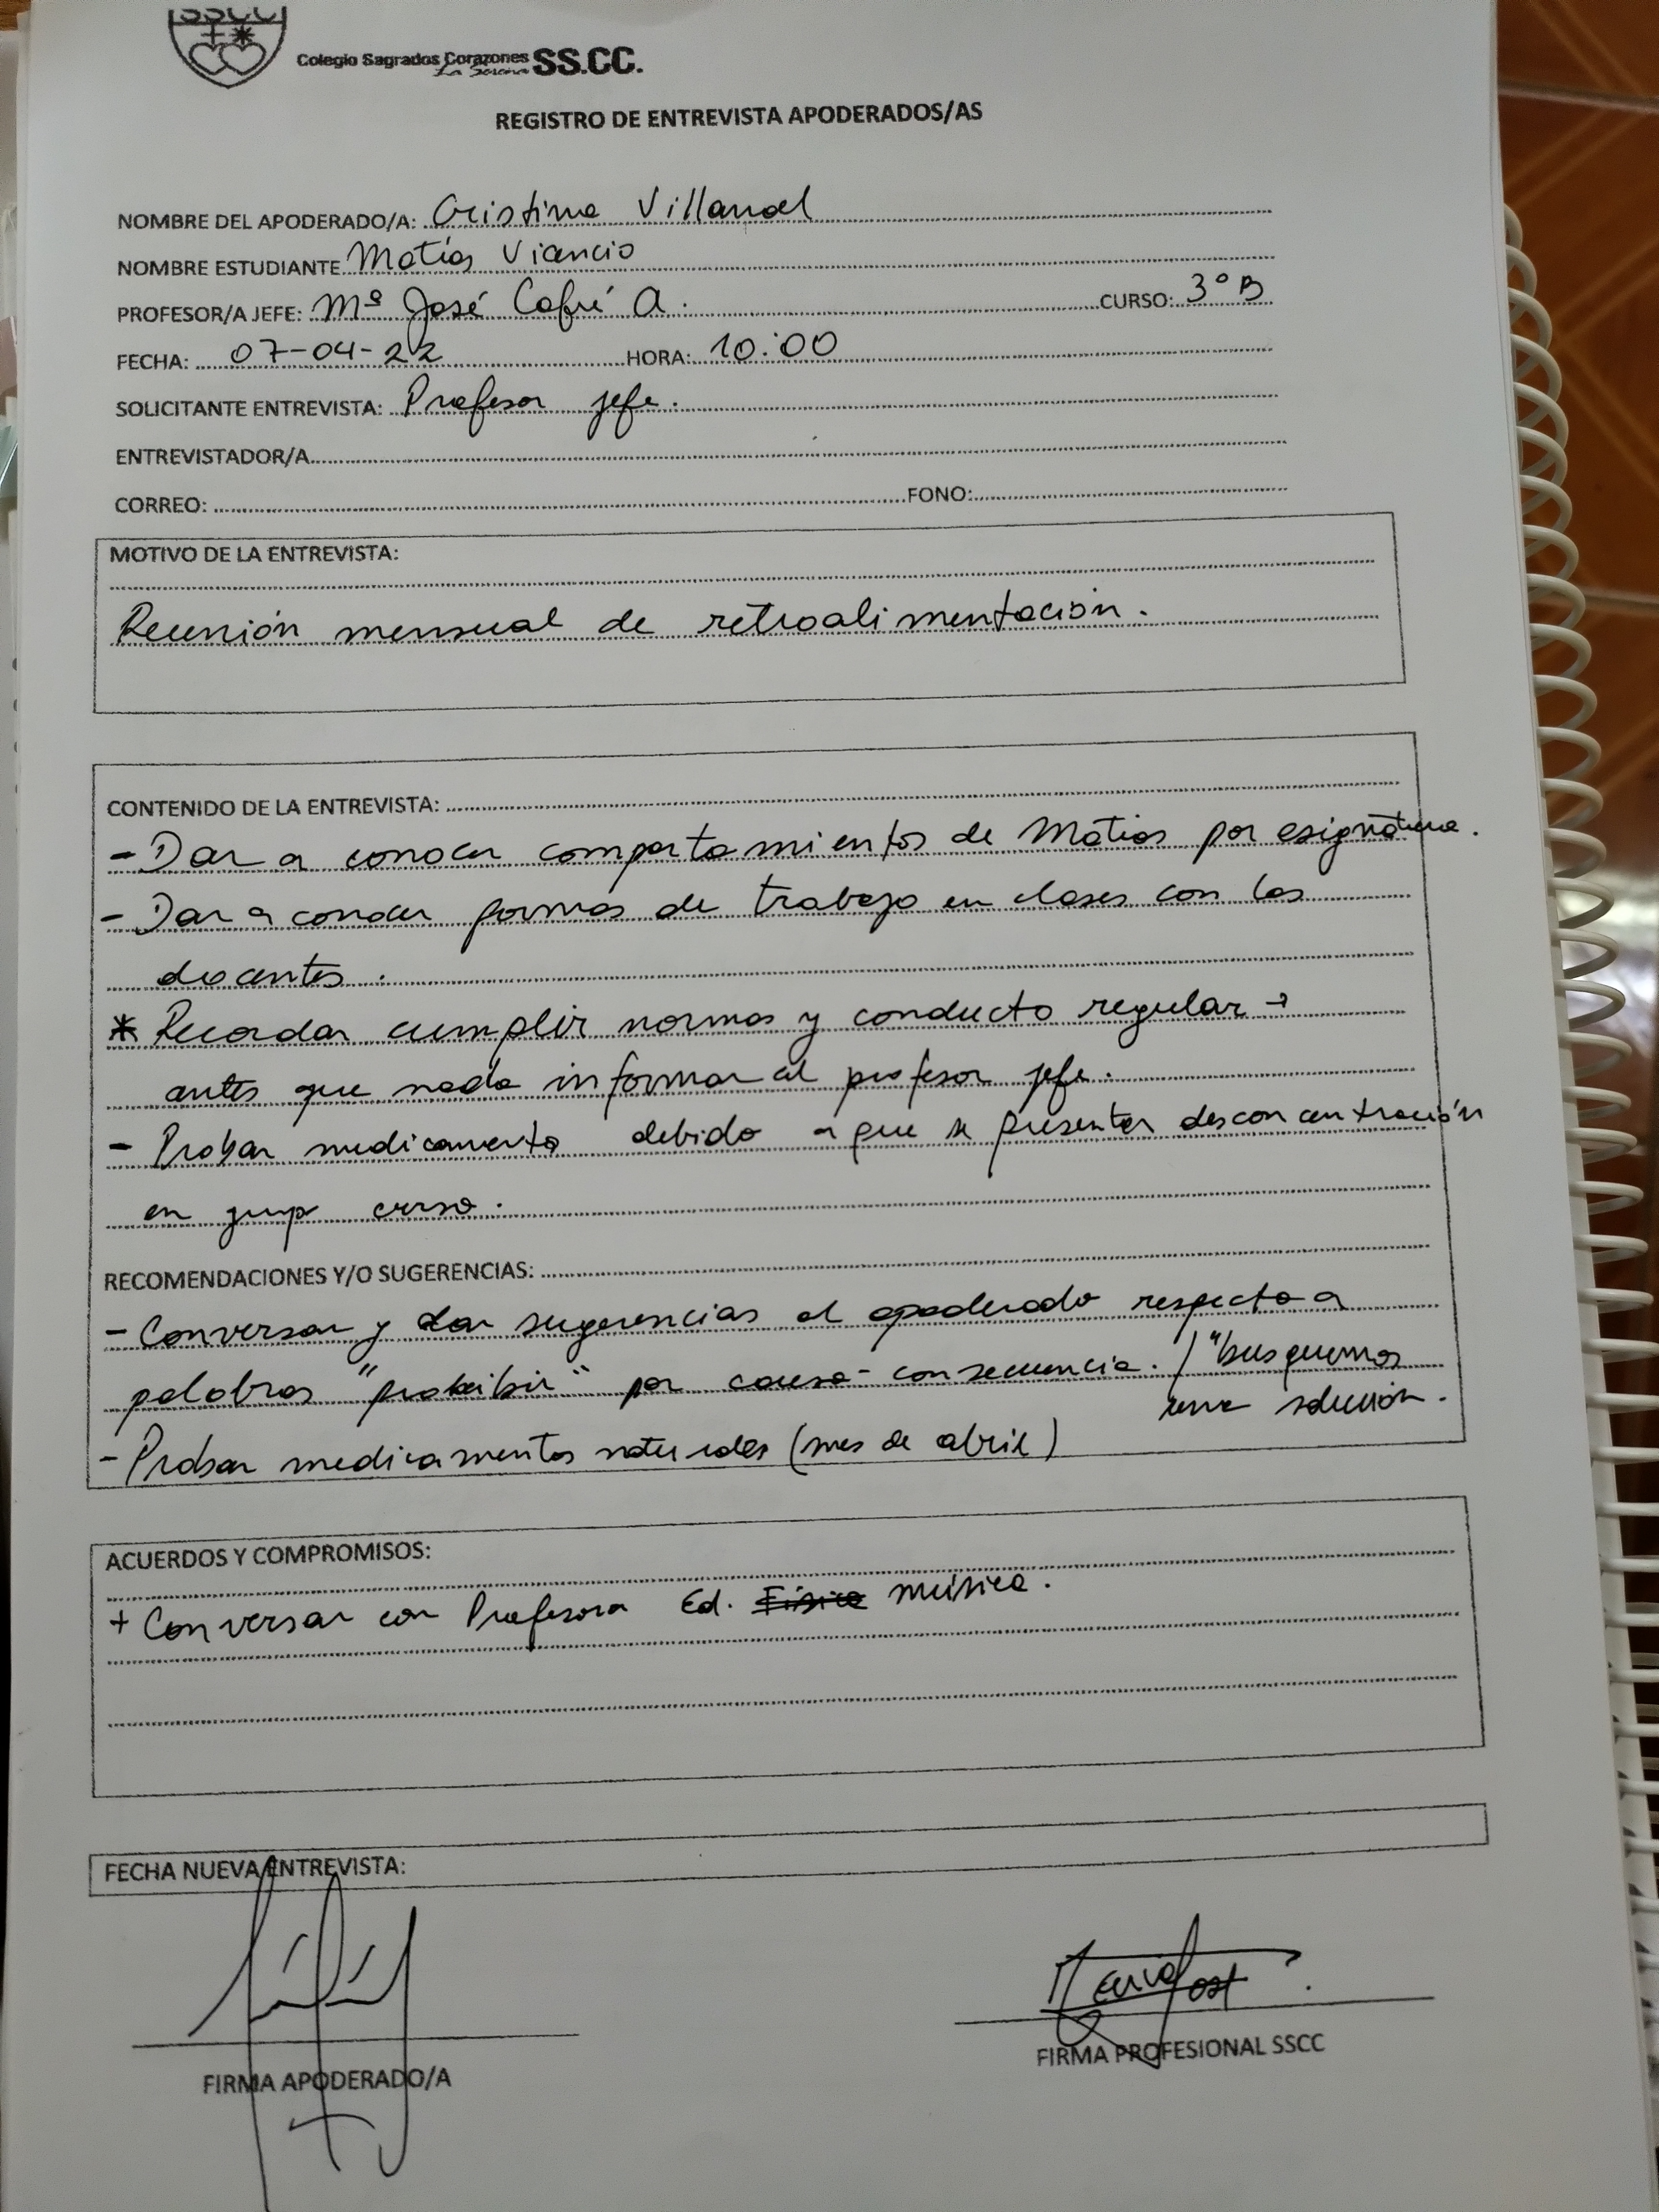 SSCC
Colegio Sagrados Corazones SS.CC.
La Serena
REGISTRO DE ENTREVISTA APODERADOS/AS
NOMBRE DEL APODERADO/A: Cristina
NOMBRE ESTUDIANTE Matías Viancio
PROFESOR/A JEFE: Mª José Cofré A. CURSO: 3° B
FECHA: 07-04-22 HORA: 10:00
SOLICITANTE ENTREVISTA: Profesor jefe.
ENTREVISTADOR/A
CORREO: FONO:
MOTIVO DE LA ENTREVISTA:
Reunión mensual de retroalimentación.
CONTENIDO DE LA ENTREVISTA:
- Dar a conocer comportamientos de Matias por asignatura.
- Dar a conocer formas de trabajo en clases con los
docentes.
* Recordar cumplir normas y conducto regular →
antes que nada informar al profesor jefe.
- Probar medicamento debido a que se presenta desconcentración
en grupo curso.
RECOMENDACIONES Y/O SUGERENCIAS:
- Conversar y dar sugerencias al apoderado respecto a
palabras "prohibir" por causa-consecuencia. / "busquemos
una solución.
- Probar medicamentos naturales (mes de abril)
ACUERDOS Y COMPROMISOS:
+ Conversar con Profesora Ed. Física música.
FECHA NUEVA ENTREVISTA:
FIRMA APODERADO/A
FIRMA PROFESIONAL SSCC